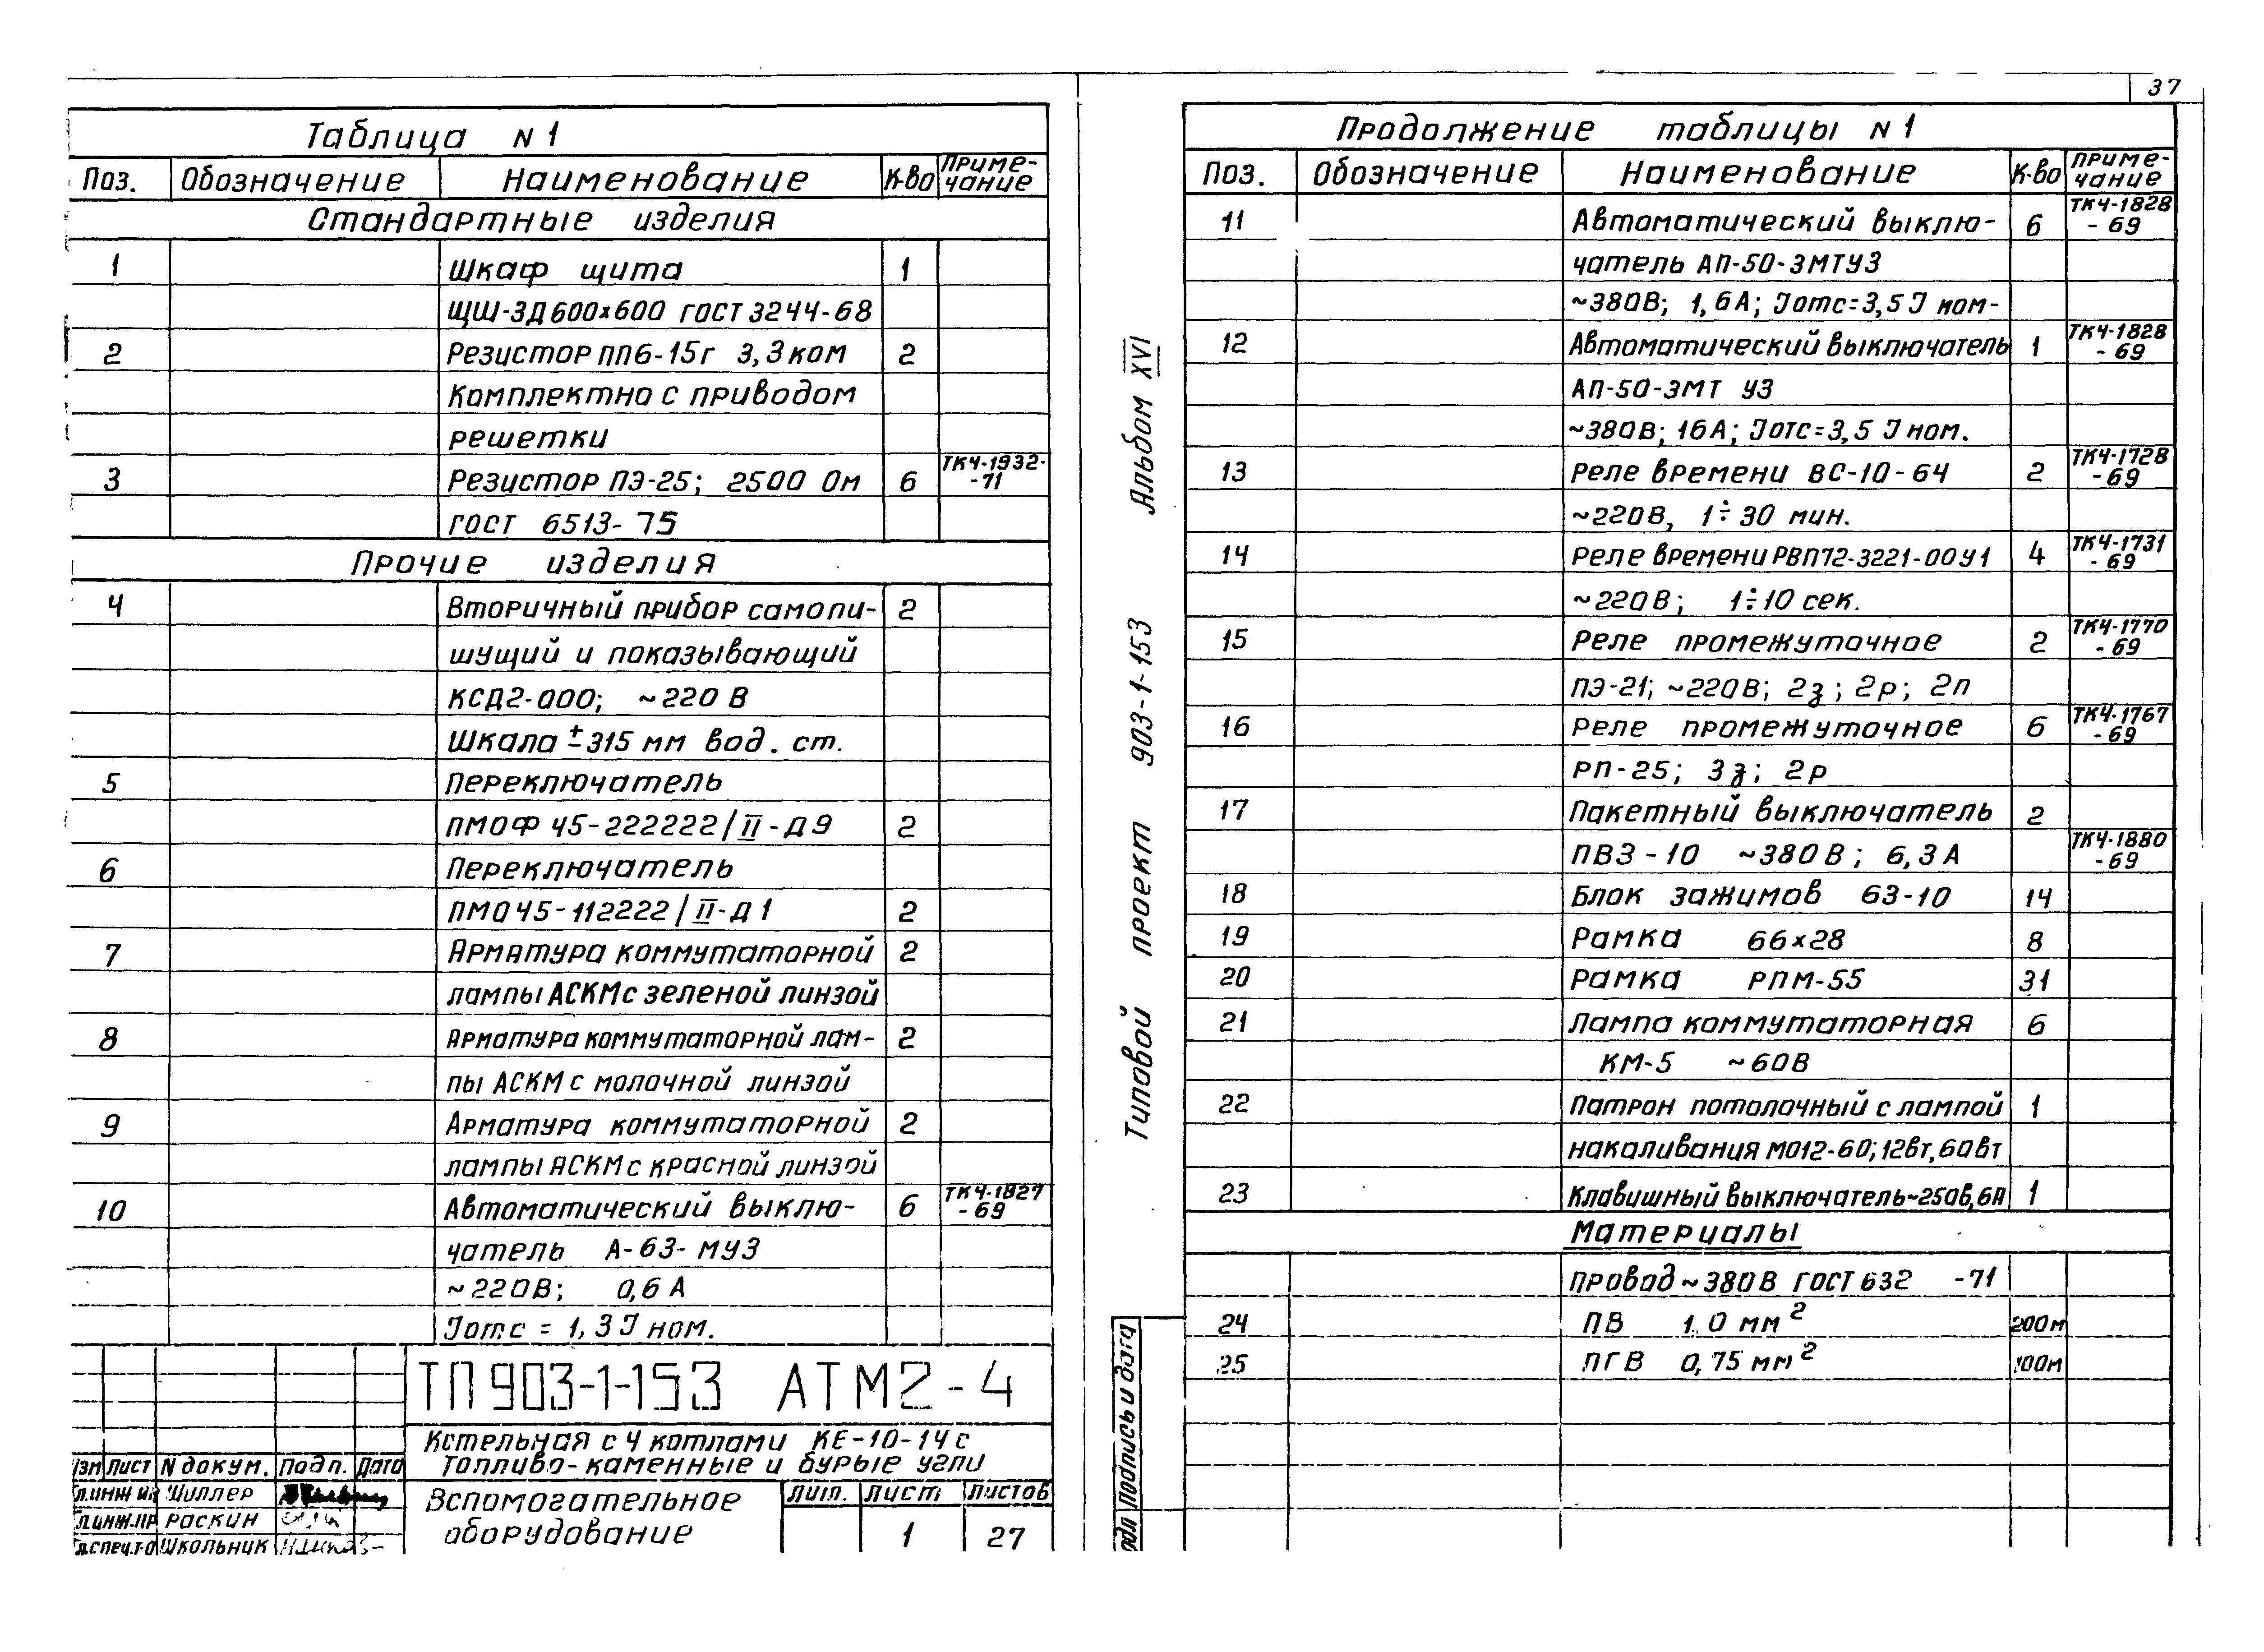 37
Таблица N 1
Поз. Обозначение Наименование К-во Приме-
чание
Стандартные изделия
1 Шкаф щита 1
ЩШ-ЗД 600х600 ГОСТ 3244-68
2 Резистор ПП6-15г 3,3 ком 2
Комплектно с приводом
решетки
3 Резистор ПЭ-25; 2500 Ом 6 ТК4-1932-
-71
ГОСТ 6513-75
Прочие изделия
4 Вторичный прибор самопи- 2
шущий и показывающий
КСД2-000; ~220 В
Шкала ±315 мм вод. ст.
5 Переключатель
ПМОФ 45-222222/II-Д9 2
6 Переключатель
ПМО45-112222/II-Д1 2
7 Арматура коммутаторной 2
лампы АСКМ с зеленой линзой
8 Арматура коммутаторной лам- 2
пы АСКМ с молочной линзой
9 Арматура коммутаторной 2
лампы АСКМ с красной линзой
10 Автоматический выклю- 6 ТК4-1827
-69
чатель А-63-МУ3
~220В; 0,6 А
Iотс = 1,3 I ном.
ТП 903-1-153 АТМ2-4
Котельная с 4 котлами КЕ-10-14с
Топливо-каменные и бурые угли
Изм Лист N докум. Подп. Дата
Вспомогательное
оборудование
Лит. Лист Листов
1 27
л.инж Шиллер
л.инж.пр Раскин
л.спец.т-о Школьник
Типовой проект 903-1-153 Альбом XVI
Подпись и дата
подл
Продолжение таблицы N 1
Поз. Обозначение Наименование К-во Приме-
чание
11 Автоматический выклю- 6 ТК4-1828
-69
чатель АП-50-3МТУ3
~380В; 1,6А; Iотс=3,5 I ном-
12 Автоматический выключатель 1 ТК4-1828
-69
АП-50-3МТ У3
~380В; 16А; Iотс=3,5 I ном.
13 Реле времени ВС-10-64 2 ТК4-1728
-69
~220В, 1÷30 мин.
14 Реле времени РВП72-3221-00У1 4 ТК4-1731
-69
~220В; 1÷10 сек.
15 Реле промежуточное 2 ТК4-1770
-69
ПЭ-21; ~220В; 2з; 2р; 2п
16 Реле промежуточное 6 ТК4-1767
-69
РП-25; 3з; 2р
17 Пакетный выключатель 2
ПВ3-10 ~380В; 6,3А ТК4-1880
-69
18 Блок зажимов БЗ-10 14
19 Рамка 66х28 8
20 Рамка РПМ-55 31
21 Лампа коммутаторная 6
КМ-5 ~60В
22 Патрон потолочный с лампой 1
накаливания МО12-60; 12вт, 60вт
23 Клавишный выключатель~250в, 6А 1
Материалы
Провод ~380В ГОСТ 632 -71
24 ПВ 1.0 мм² 200м
25 ПГВ 0,75 мм² 100м